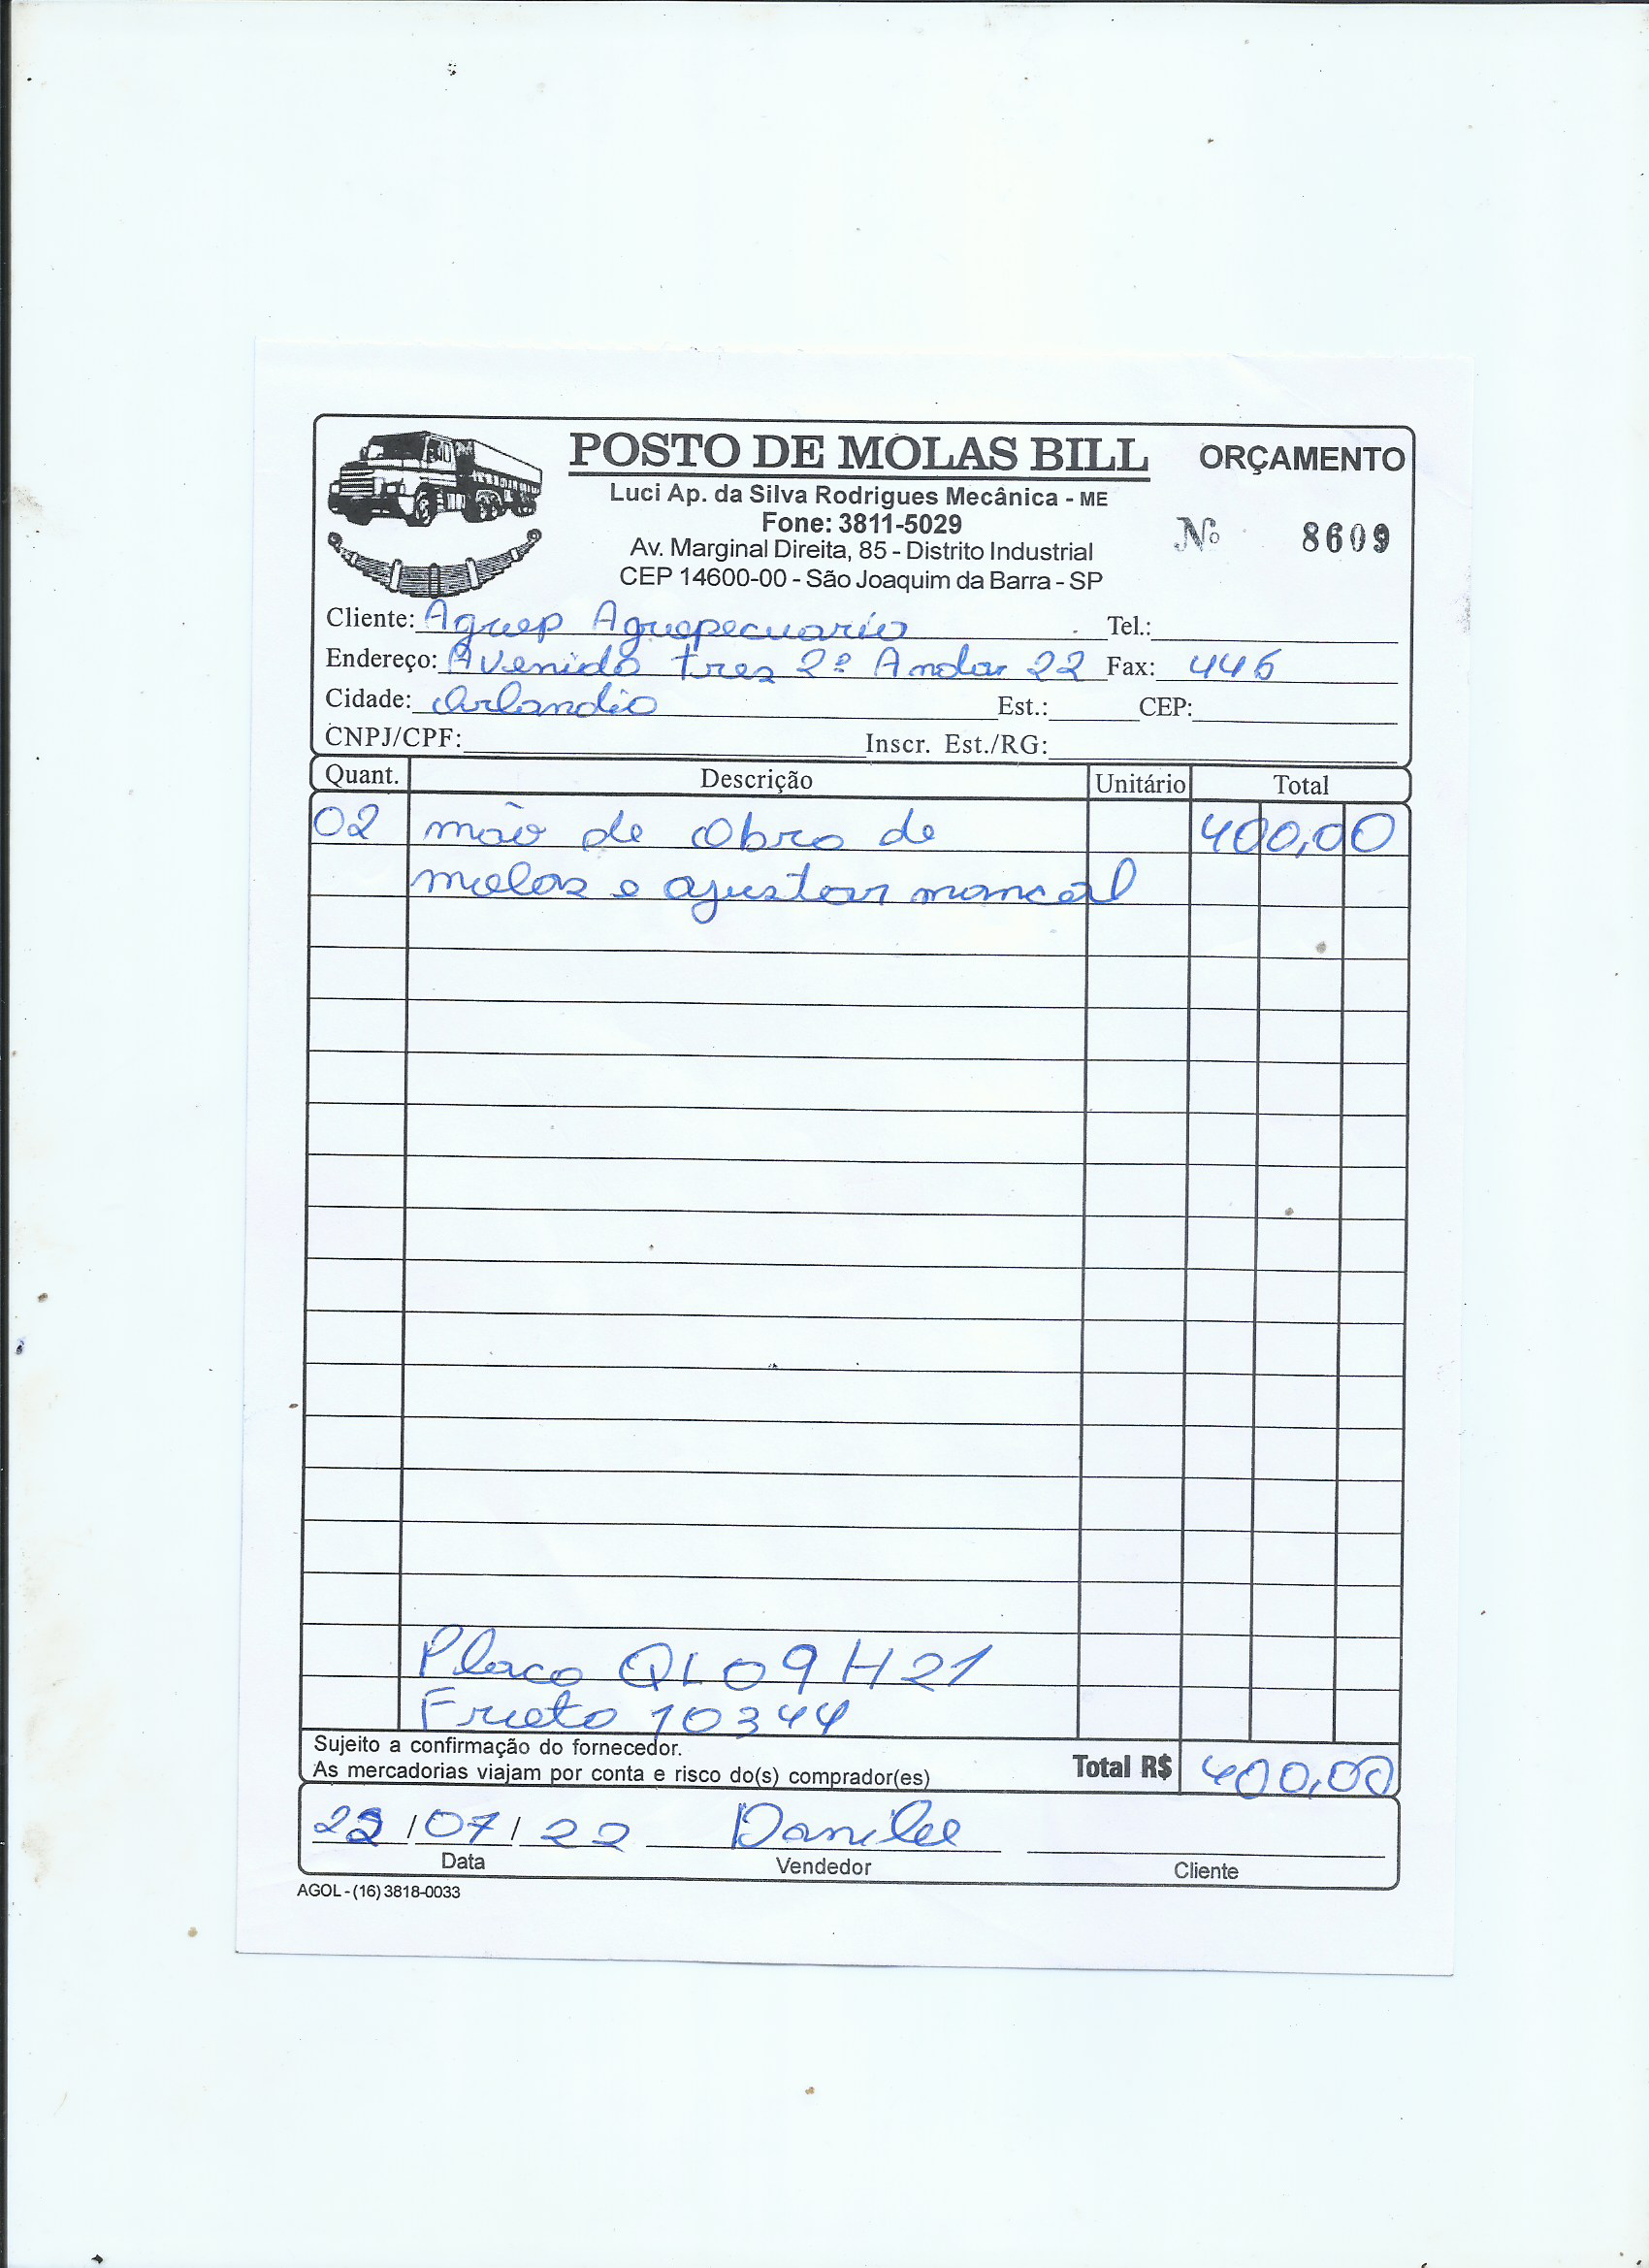 POSTO DE MOLAS BILL ORÇAMENTO
Luci Ap. da Silva Rodrigues Mecânica - ME
Fone: 3811-5029
Nº 8609
Av. Marginal Direita, 85 - Distrito Industrial
CEP 14600-00 - São Joaquim da Barra - SP
Cliente: Agrep Agropecuario Tel.:
Endereço: Avenida tres 2º Andar 22 Fax: 446
Cidade: Orlandia Est.: CEP:
CNPJ/CPF: Inscr. Est./RG:
Quant. Descrição Unitário Total
02 mão de obra de 400,00
molas e ajustar mancal
Placa QLO9H21
Frota 10344
Sujeito a confirmação do fornecedor.
As mercadorias viajam por conta e risco do(s) comprador(es) Total R$ 400,00
/07/22 Danilo
Data Vendedor Cliente
AGOL - (16) 3818-0033